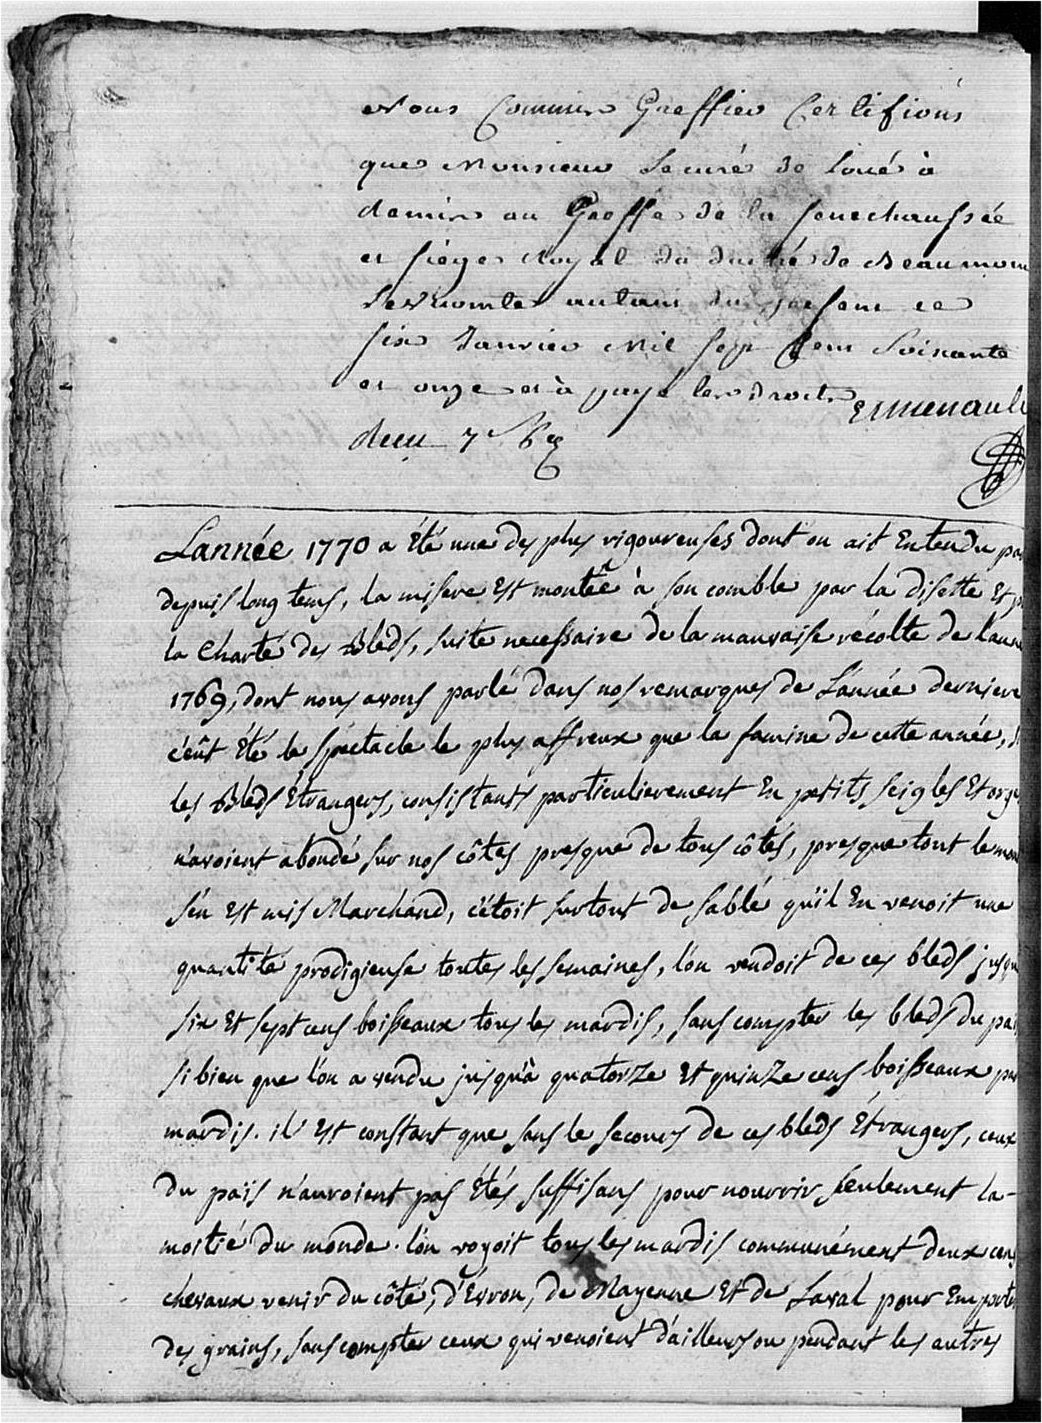 Nous Commis Greffier Certifions
que Monsieur Le curé de Loué à
remis au Greffe de la senechaussée
et siège Royal du duché de Beaumon
Le Vicomte autant du present ce
six Janvier Mil sept Cent Soixante
et onze et à payé les droits
Ermenault
Lannée 1770 a été une des plus rigoureuses dont on ait Entendu pa
depuis long tems, la misere Est montée à son comble par la disette Et p
la Charté des Bleds, suite necessaire de la mauvaise récolte de l'ann
1769, dont nous avons parlé dans nos remarques de L'année derniere
c'eût été le spectacle le plus affreux que la famine de cette année, s
les Bleds Étrangers, consistants particulierement En petits seigles Et orge
n'avoient abondé sur nos côtes presque de tous côtés, presque tout le mon
s'en Est mis Marchand, c'étoit surtout de sablé qu'il En venoit une
quantité prodigieuse toutes les semaines, l'on vendoit de ces bleds jusqu
six Et sept cens boisseaux tous les mardis, sans compter les bleds du pai
si bien que l'on a vendu jusqu'à quatorze Et quinze cens boisseaux par
mardis. il Est constant que sans le secours de ces bleds Étrangers, ceux
du païs n'auroient pas Étés suffisans pour nourrir seulement la
moitié du monde. l'on voyoit tous les mardis communément deux cens
chevaux venir du côté, d'Evron, de Mayenne Et de Laval pour Emporter
des grains, sans compter ceux qui venoient d'ailleurs ou pendant les autres